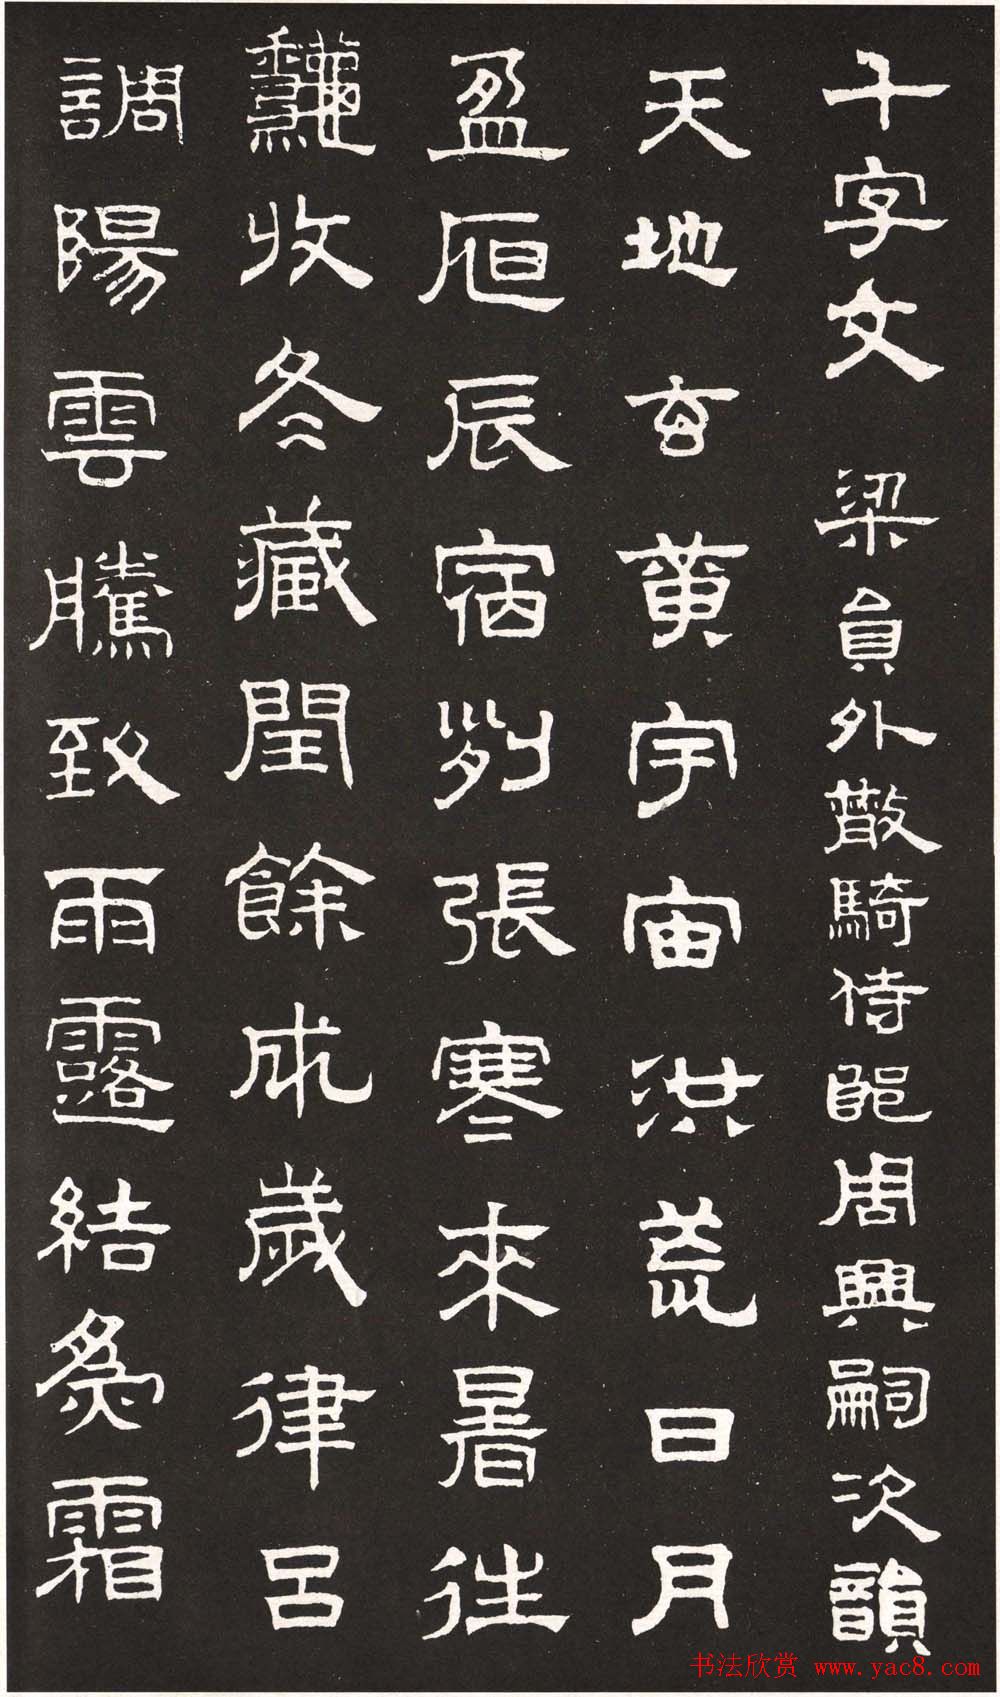 千字文 梁員外散騎侍郎周興嗣次韻
天地玄黄宇宙洪荒日月
盈昃辰宿列張寒來暑往
龝收冬藏閏餘成歲律吕
調陽雲騰致雨露結為霜
书法欣赏 www.yac8.com